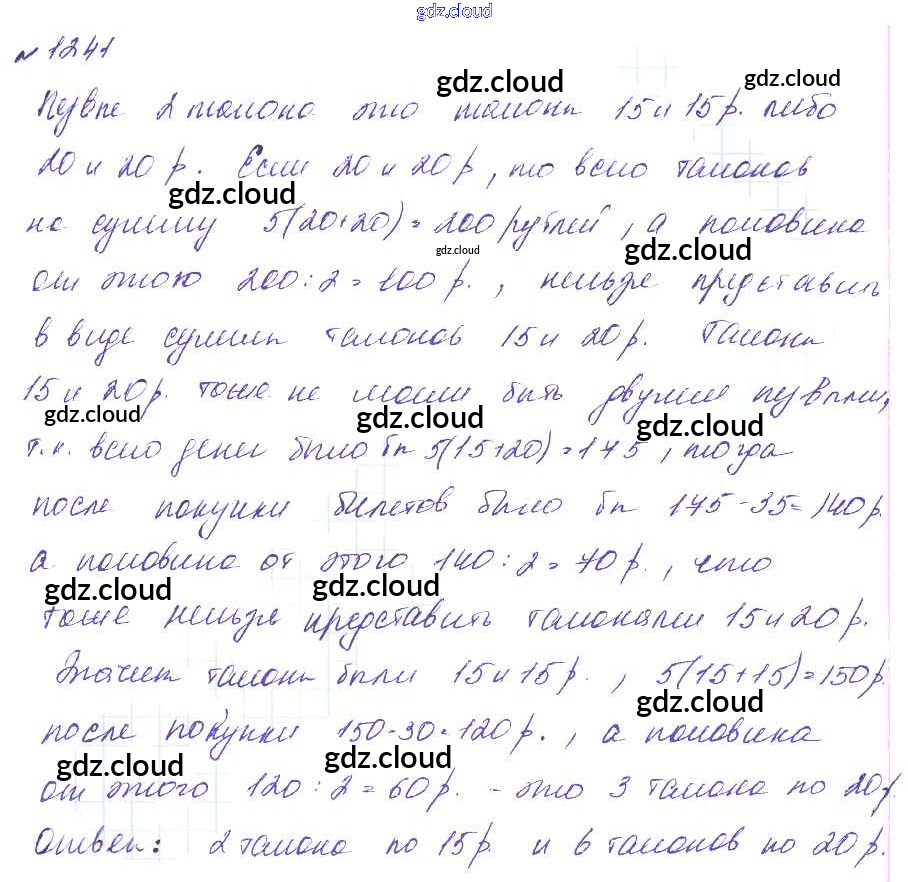 gdz.cloud
№ 1241
gdz.cloud gdz.cloud
Первые 2 талона это талоны 15 и 15 р. либо
20 и 20 р. Если 20 и 20 р, то всего талонов
gdz.cloud
на сумму 5(20+20) = 200 рублей, а половина
gdz.cloud gdz.cloud
от этого 200 : 2 = 100 р., нельзя представить
в виде суммы талонов 15 и 20 р. Талоны
15 и 20 р. тоже не могли быть двумя первыми,
gdz.cloud gdz.cloud gdz.cloud
т.к. всего денег было бы 5(15+20) = 175, тогда
после покупки билетов было бы 175 - 35 = 140 р.
а половина от этого 140 : 2 = 70 р., что
gdz.cloud gdz.cloud
тоже нельзя представить талонами 15 и 20 р.
Значит талоны были 15 и 15 р., 5(15+15) = 150 р.
gdz.cloud
после покупки 150 - 30 = 120 р., а половина
gdz.cloud
от этого 120 : 2 = 60 р. - это 3 талона по 20 р.
Ответ: 2 талона по 15 р и 6 талонов по 20 р.